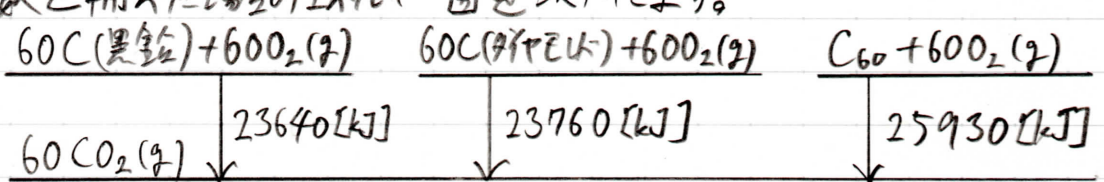 60C(黒鉛)+60O₂(g) 60C(ダイヤモンド)+60O₂(g) C₆₀+60O₂(g)
23640[kJ] 23760[kJ] 25930[kJ]
60CO₂(g)